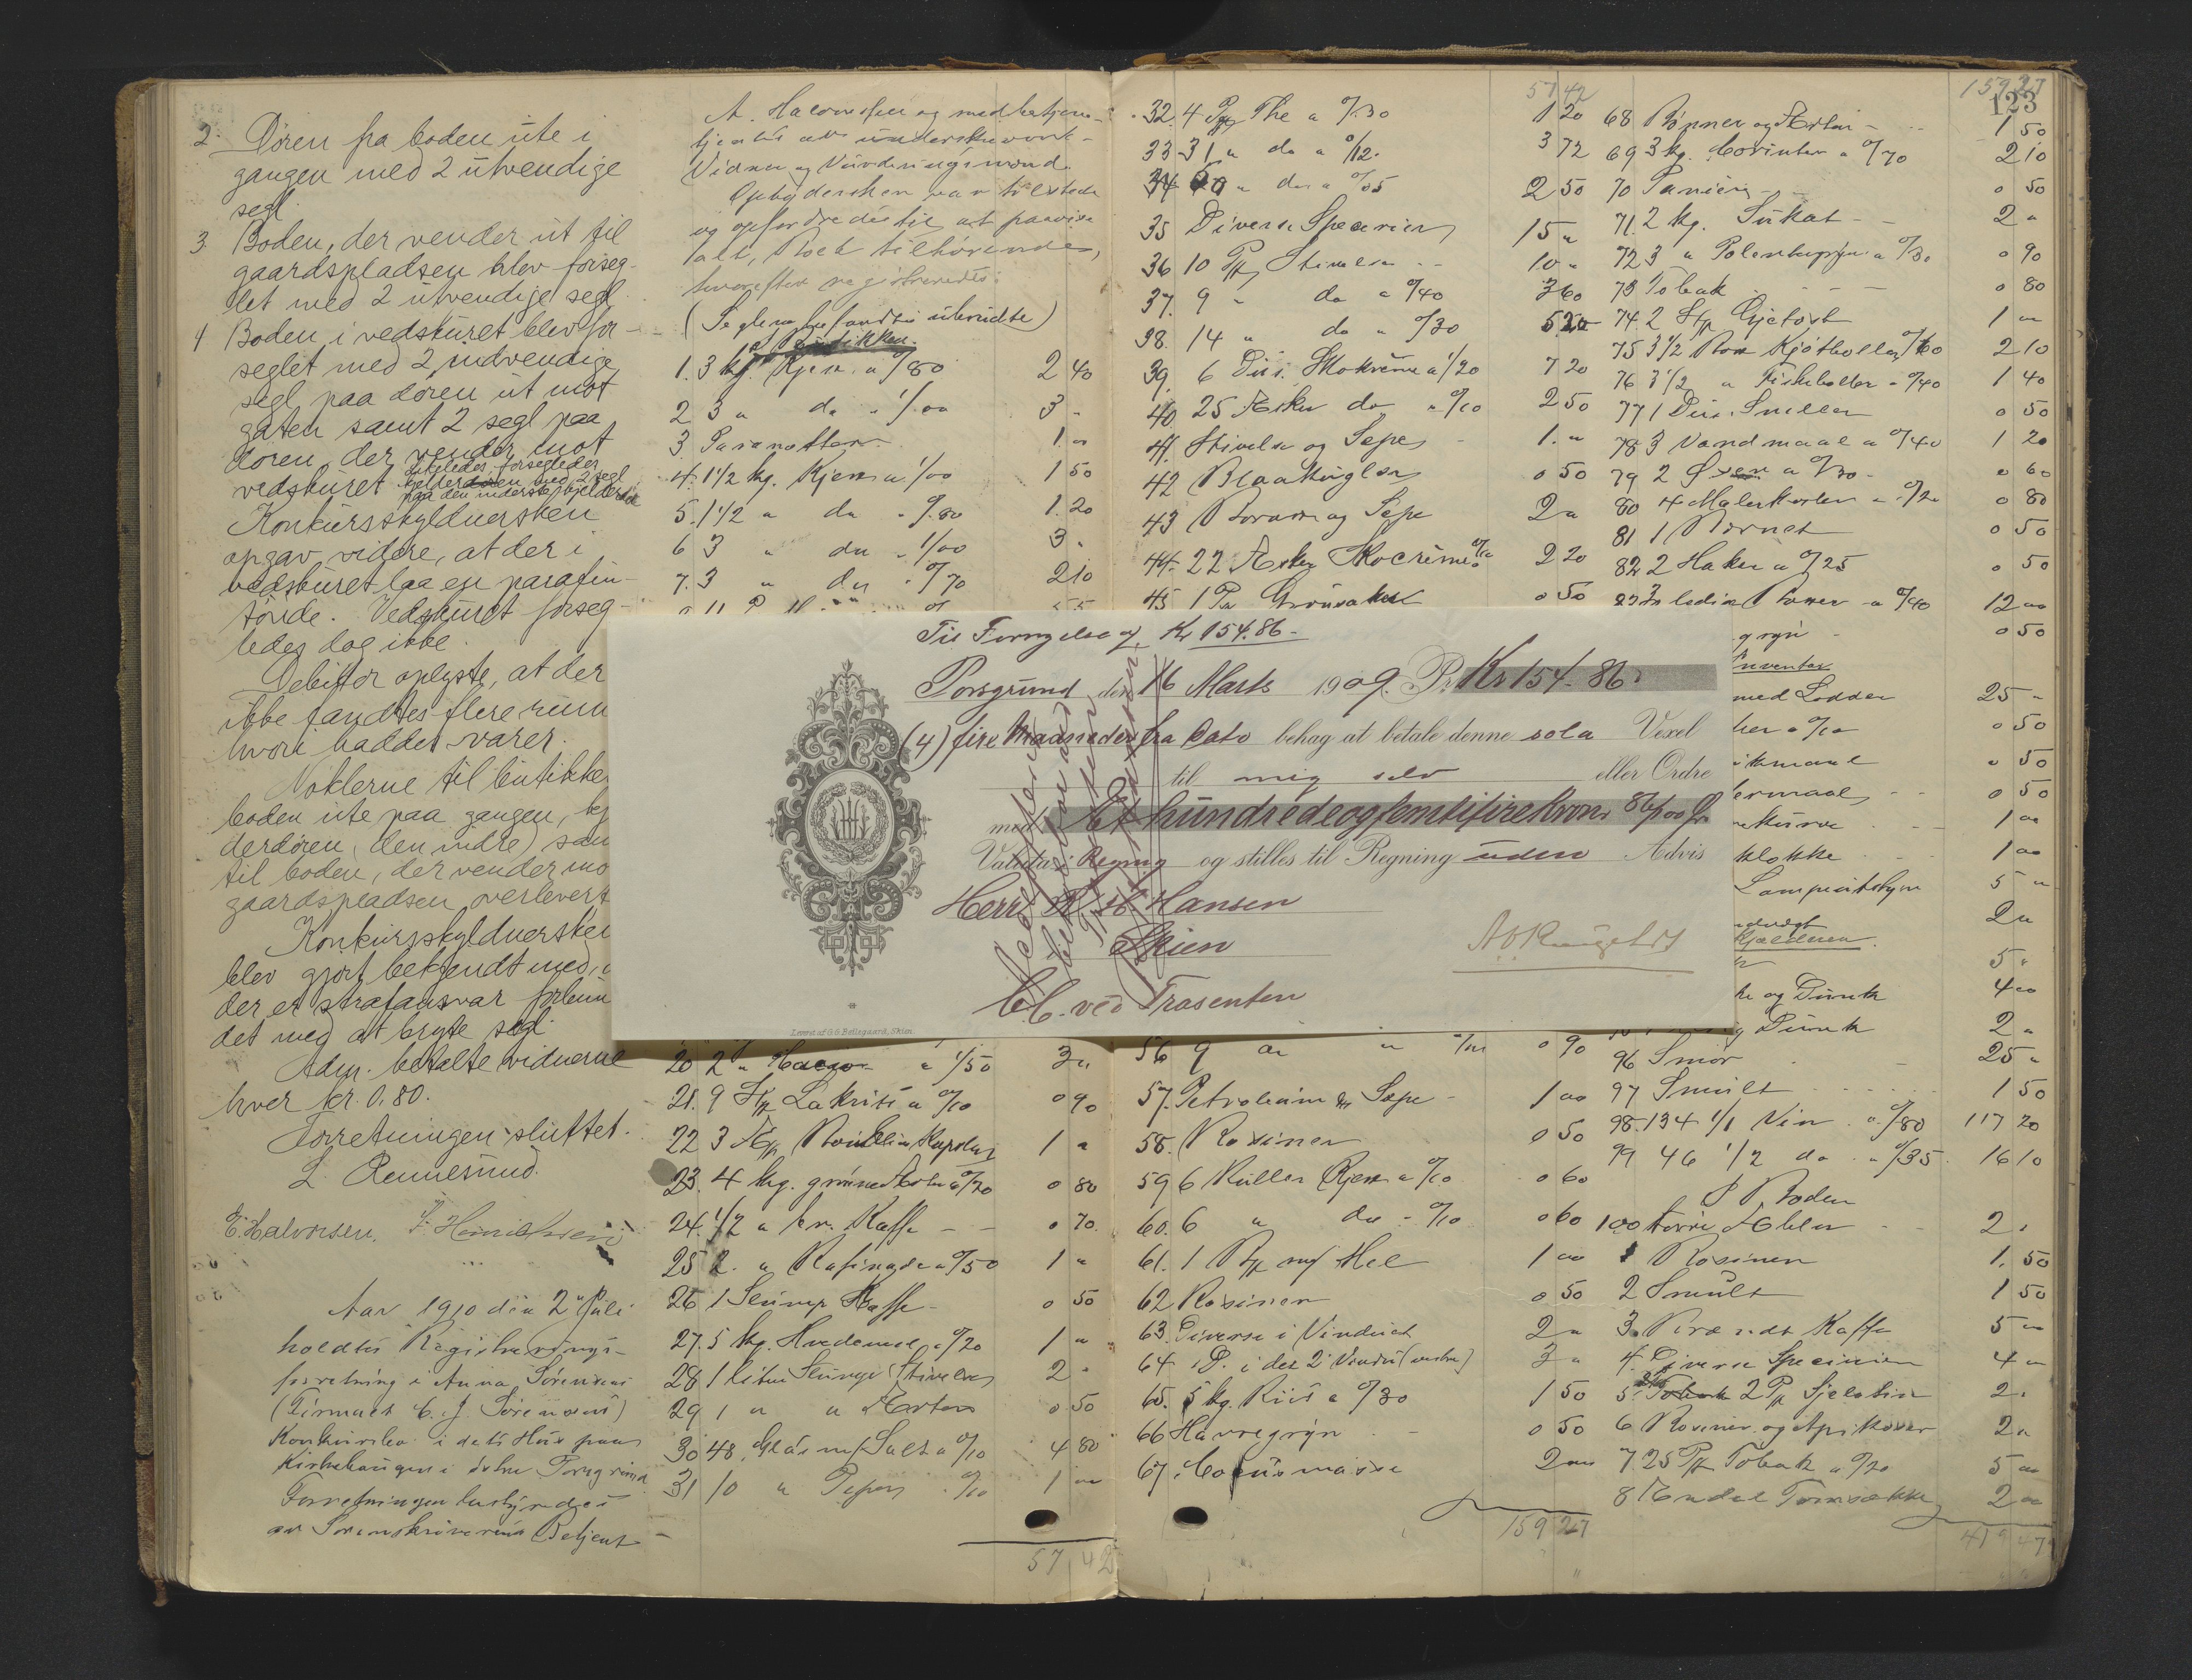 2. Døren fra boden ute i
gangen med 2 utvendige
segl.
3. Boden, der vender ut til
gaardspladsen blev forseg-
let med 2 utvendige segl
4 Boden i vedskuret blev for-
seglet med 2 indvendige
segl paa døren ut mot
gaten samt 2 segl paa
døren, der vender mot
vedskuret. Likeledes forsegledes
kjelderdøren med 2 segl
paa den underste kjelderdør
Konkursskyldnersken
opgav videre, at der i
vedskuret laa en parafin-
tønde. Vedskuret forseg-
ledes dog ikke.
Debitor oplyste, at der
ikke fandtes flere rum
hvori haddes varer.
Nøklerne til butikke
boden ute paa gangen, kj
derdøren (den indre) sam
til boden, der vender mo
gaardspladsen overlevert
Konkursskyldnersken
blev gjort bekjendt med, a
der er strafansvar forbun
det med at bryte segl.
Adm. betalte vidnerne
hver kr. 0.80.
Forretningen sluttet.
L. Rennesund.
E. Halvorsen.
Aar 1910 den 2 Juli
holdtes Registrerings-
forretning i Anna Sørensens
(Firmaet C. J. Sørensens)
Konkursbo i dets Hus paa
Kirkehaugen i østre Porsgrund
Forretningen bestyredes
av Sorenskriverens Betjent
A. Halvorsen og medbetjen-
tjentes av underskrevne
Vidner og Vurderingsmænd.
Opbydersken var tilstede
og opfordredes til at paavise
alt, Boet tilhørende,
hvorefter registreredes:
(Seglene befandtes ubrudte)
I Butikken.
1. 3 kg. Kjex a 0/80 2 40
2 3 " do " 1/00 3 "
3 Paranøtter 1 "
4. 1 1/2 kg. Kjex a 1/00 1 50
5. 1 1/2 " do " 0/80 1.20
6 3 " do " 1/00 3 "
7. 3 " do " 0/70 2 10
20 2 " " 1/50 3 "
21. 9 Stk Lakrits a 0/10 0 90
22 3 Kapsler 1 "
23. 4 kg. grønne Erter a 0/20 0 80
24. 1/2 " br. Kaffe - - 0 70
25 2 " Rafinade a 0/50 1 "
26 1 Slump Kaffe - 0 50
27. 5 kg. Hvedemel a 0/20 1 "
28 1 liten Slump Stivelse 2 "
29 1 " " Erter 0 50
30 48 Glas m/ Salt a 0/10 4 80
31 10 " Peper " 0/10 1 "
57 42
57 42
32. 4 Pk The a 0/30 1 20
33 31 " do a 0/12 3 72
34 " do a 0/05 2 50
35 Diverse Specerier 15 "
36 10 Pk Stivelse - - 10 "
37. 9 " do a 0/40 3 60
38. 14 " do " 0/30 5 20
39. 6 Dus. Skokreme a 1/20 7 20
40 25 Æsker do a 0/10 2 50
41. Stivelse og Sepe - 1. "
42 Blaakugler 0 50
43 Borax og Sepe 2 "
44. 22 Æsker Skocreme a 0/10 2 20
45 1 Pk 0 50
56 9 0 90
57. Petroleum Sæpe - 1 00
58. Rosiner 0 50
59 6 Ruller Kjex a 0/10 0 60
60. 6 " do - 0/10 0 60
61. 1 Pk m/ Mel 1 00
62 Rosiner 0 50
63. Diverse i Vinduet 2 "
64 D. i det 2' Vindu (vestre) 3 "
65. 5 kg. Riis a 0/30 1 50
66 Havregryn 0 50
67. Cocusmasse 2 00
159 27
159 27
123
68 Bønner og Erter - 1 50
69 3 kg. Corinter a 0/70 2 10
70 Paniers - 0 50
71. 2 kg. Sukat - - 2 "
72 3 " a 0/30 0 90
73 Tobak 0 80
74. 2 Stk Gjetost 1 "
75 3 1/2 Box Kjøtboller a 0/60 2 10
76 3 1/2 " Fiskeboller " 0/40 1 40
77 1 Dus. Sneller 0 50
78 3 Vandmaal a 0/40 1 20
79 2 Øxer a 0/30 - 0 60
80 4 Malerkoster a 0/20 0 80
81 1 0 50
82 2 Haker a 0/25 0 50
a 0/40 12 00
gryn - 0 50
Inventar
med Lodder 25 "
a 0/10 0 50
0 50
0 50
1 00
klokke 1 00
5 "
2 "
Kjælderen
5 "
og Dunk 4 00
Dunk 2 "
96 Smør 25 "
97 Smult 1 50
98 134 1/1 Vin a 0/80 117 20
99 46 1/2 do " 0/35 16 10
I Boden
100 tørre Æbler - - 2 "
1 Rosiner 1. 50
2 Smult 1 50
3. Brændt Kaffe 5 "
4. Diverse Specerier 4 "
5. 2 Pk Gjelatin 2 "
6 Rosiner og Aprikoser 2 "
7. 25 Pk Tobak a 0/20 5 00
8 Endel Tomsække 2 "
419 47
Til Fornyelse af Kr 154.86 -
Porsgrund den 16 Marts 1909. Pr. Kr 154.86
(4) fire Maaneder fra Dato behag at betale denne sola Vexel
til mig selv eller Ordre
med Et hundrede og femtifire Kroner 86/00 Ør.
Valuta i Regning og stilles til Regning uden Advis
Herr Hansen
Skien
C. C. ved Trasenten
Accepteres
Leveret af G. G. Bøllegaard, Skien.